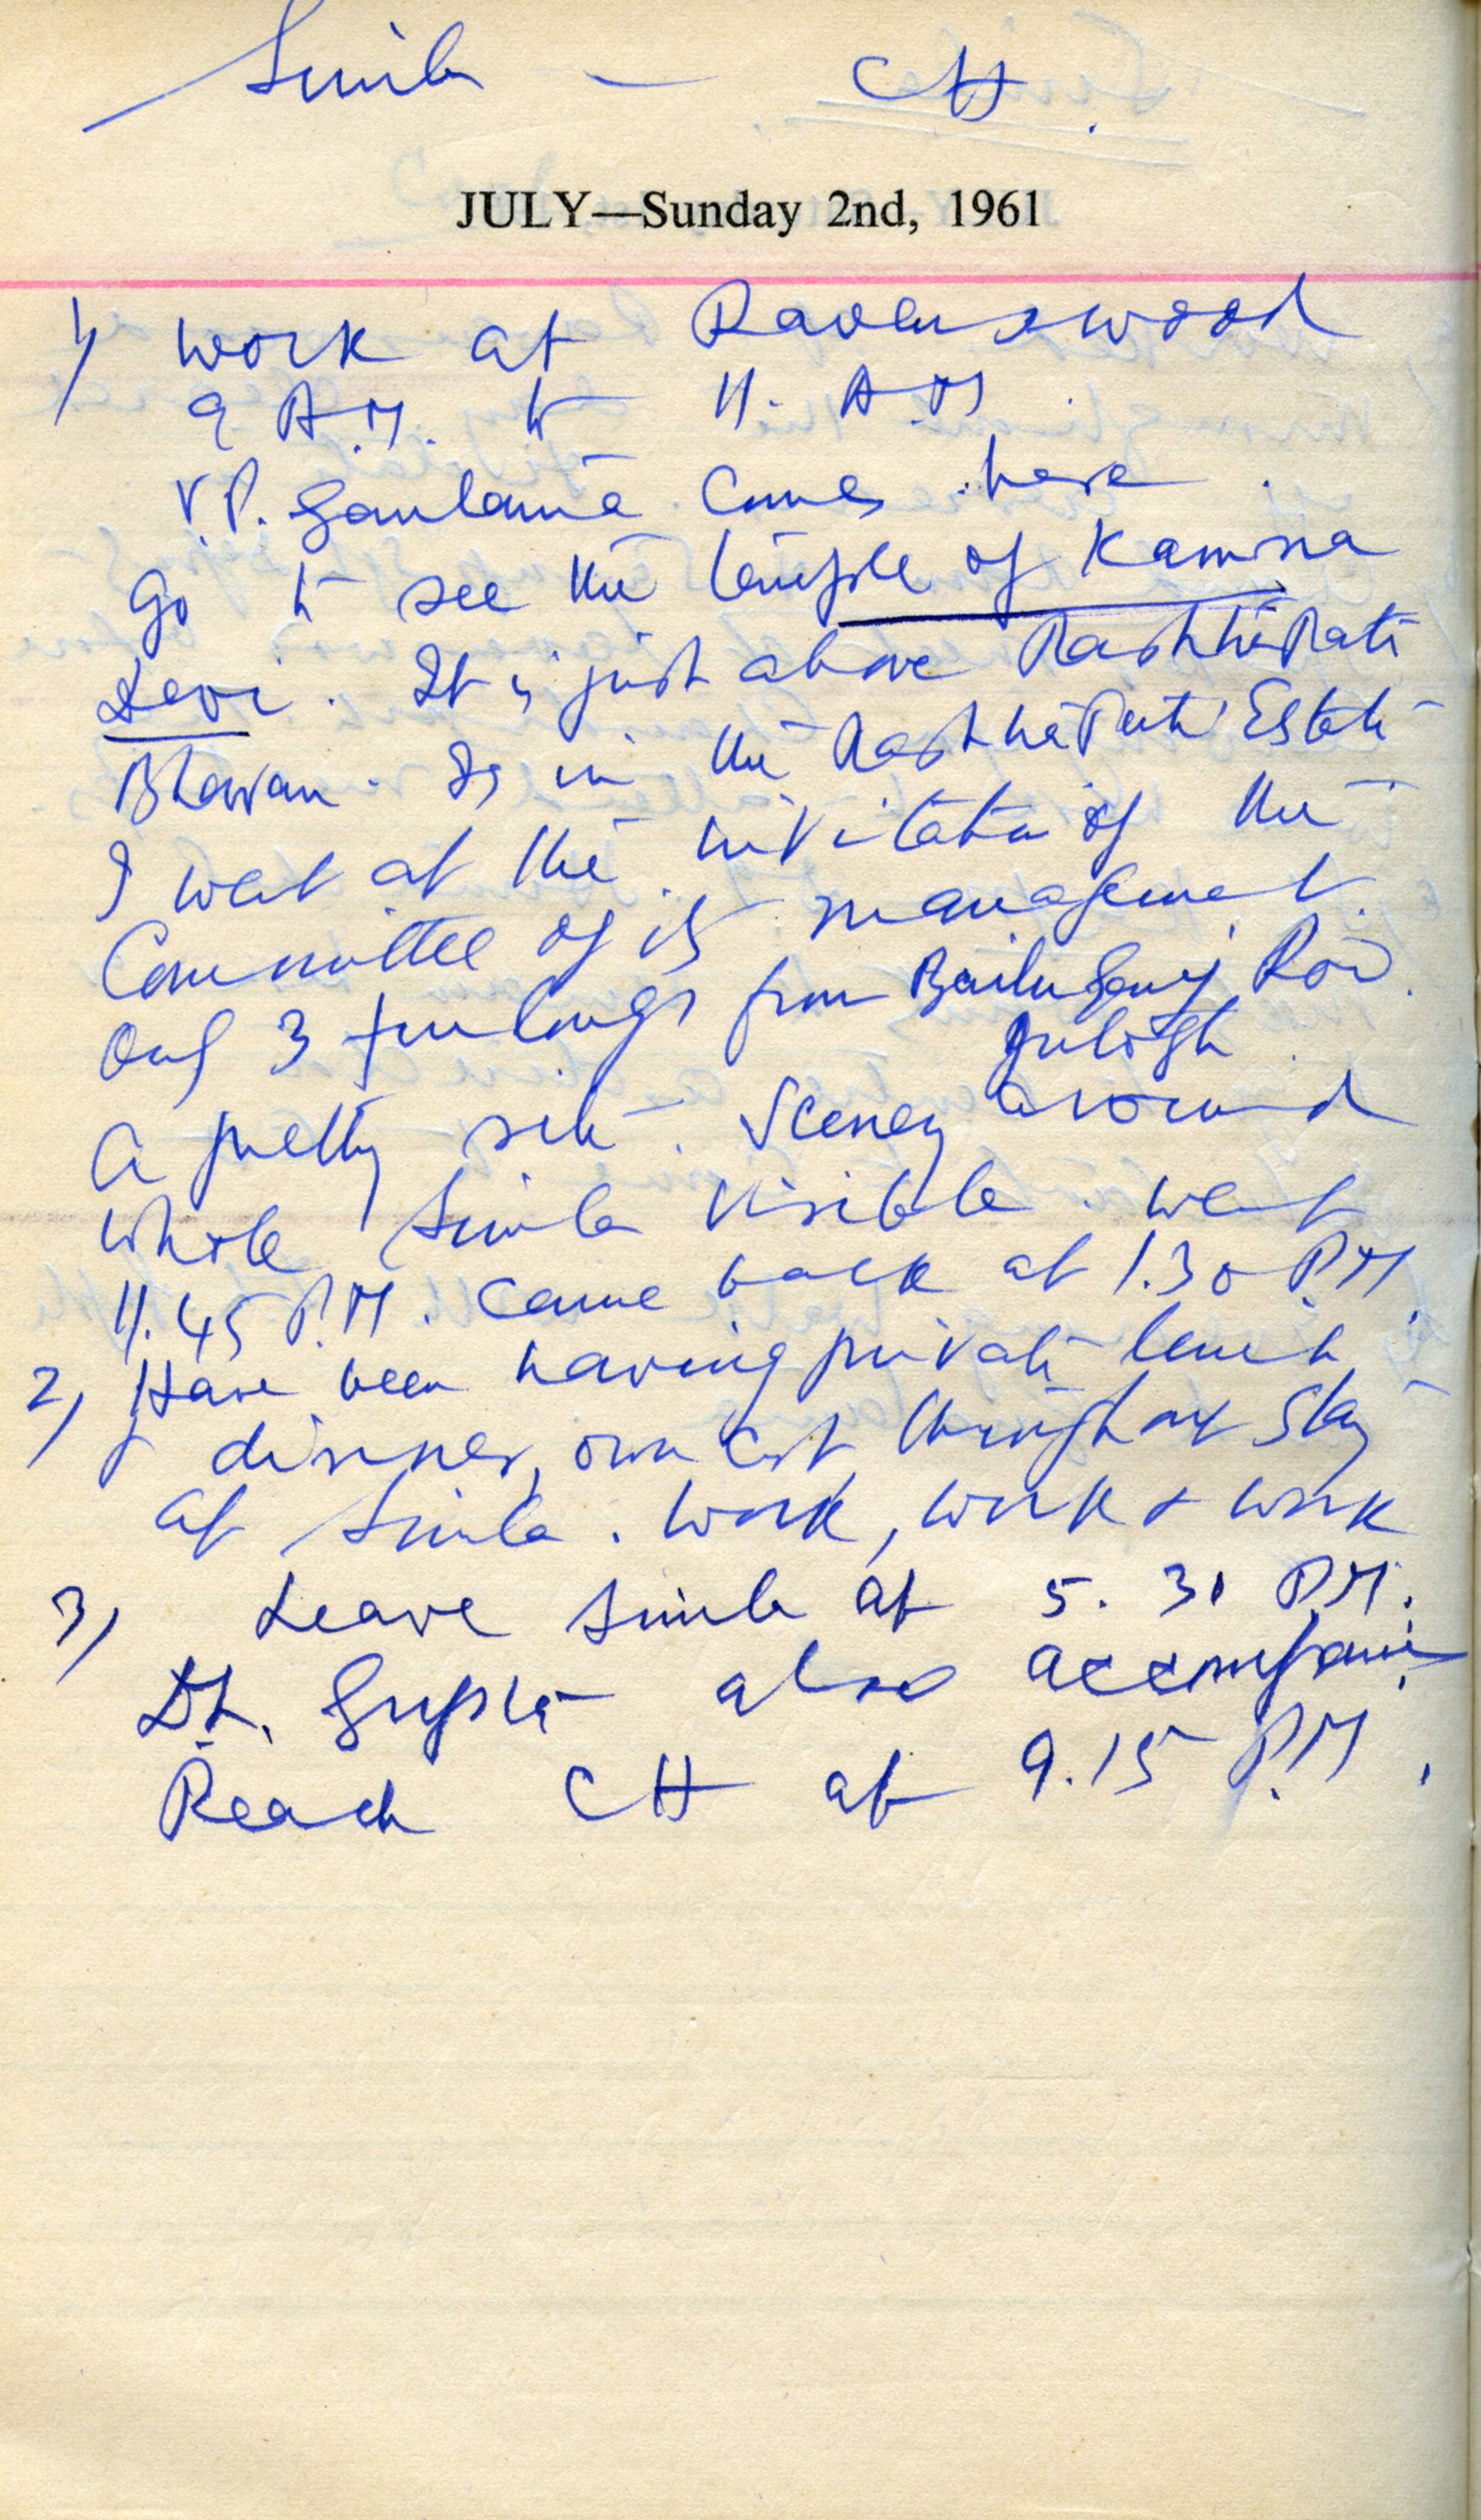 Simla — CH.
JULY—Sunday 2nd, 1961
1) Work at Ravenswood
9 A.M. to 11. A.M.
V.P. Gautama comes here.
Go to see the temple of Kamna
Devi. It is just above Rashtrapati
Bhawan. Is in the Rashtrapati Estate
I went at the invitation of the
Committee of its management.
Only 3 furlongs from Boileuganj Road.
Jutogh.
A pretty site. Scenery around
Whole Simla visible. Went
11.45 P.M. Came back at 1.30 P.M.
2) Have been having private lunch
& dinner, own cost throughout stay
at Simla. Work, work & work
3) Leave Simla at 5.30 P.M.
Dr. Gupta also accompanies
Reach CH at 9.15 P.M.